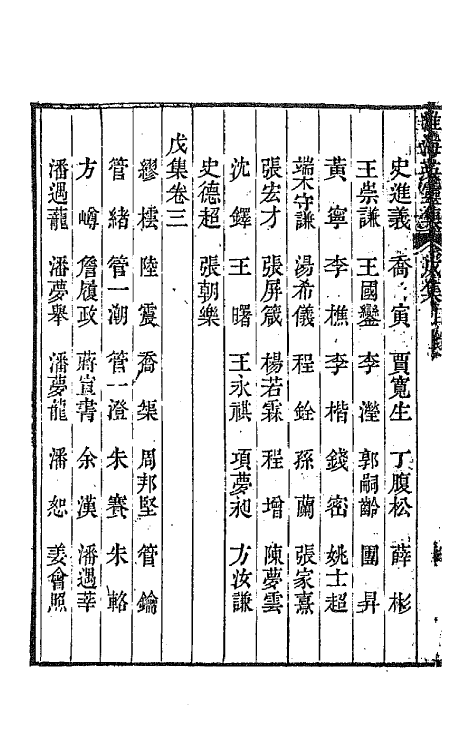 史進義 喬寅 賈寬生 丁腹松 薛彬
王崇謙 王國鑾 李瀅 郭嗣齡 團昇
黃寧 李樵 李楷 錢密 姚士超
端木守謙 湯希儀 程銓 孫蘭 張家熹
張宏才 張屏箴 楊若霖 程增 陳夢雲
沈鐸 王曙 王永祺 項夢昶 方汝謙
史德超 張朝樂
戊集卷三
繆橒 陸震 喬榘 周邦堅 管鑰
管緒 管一潮 管一澄 朱賽 朱輅
方嶟 詹履政 蔣宣書 余漢 潘遇莘
潘遇龍 潘夢舉 潘夢龍 潘恕 姜會照